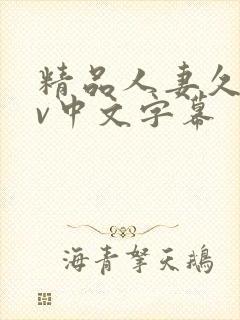 精品人妻久
v中文字幕
海青拏天鹅